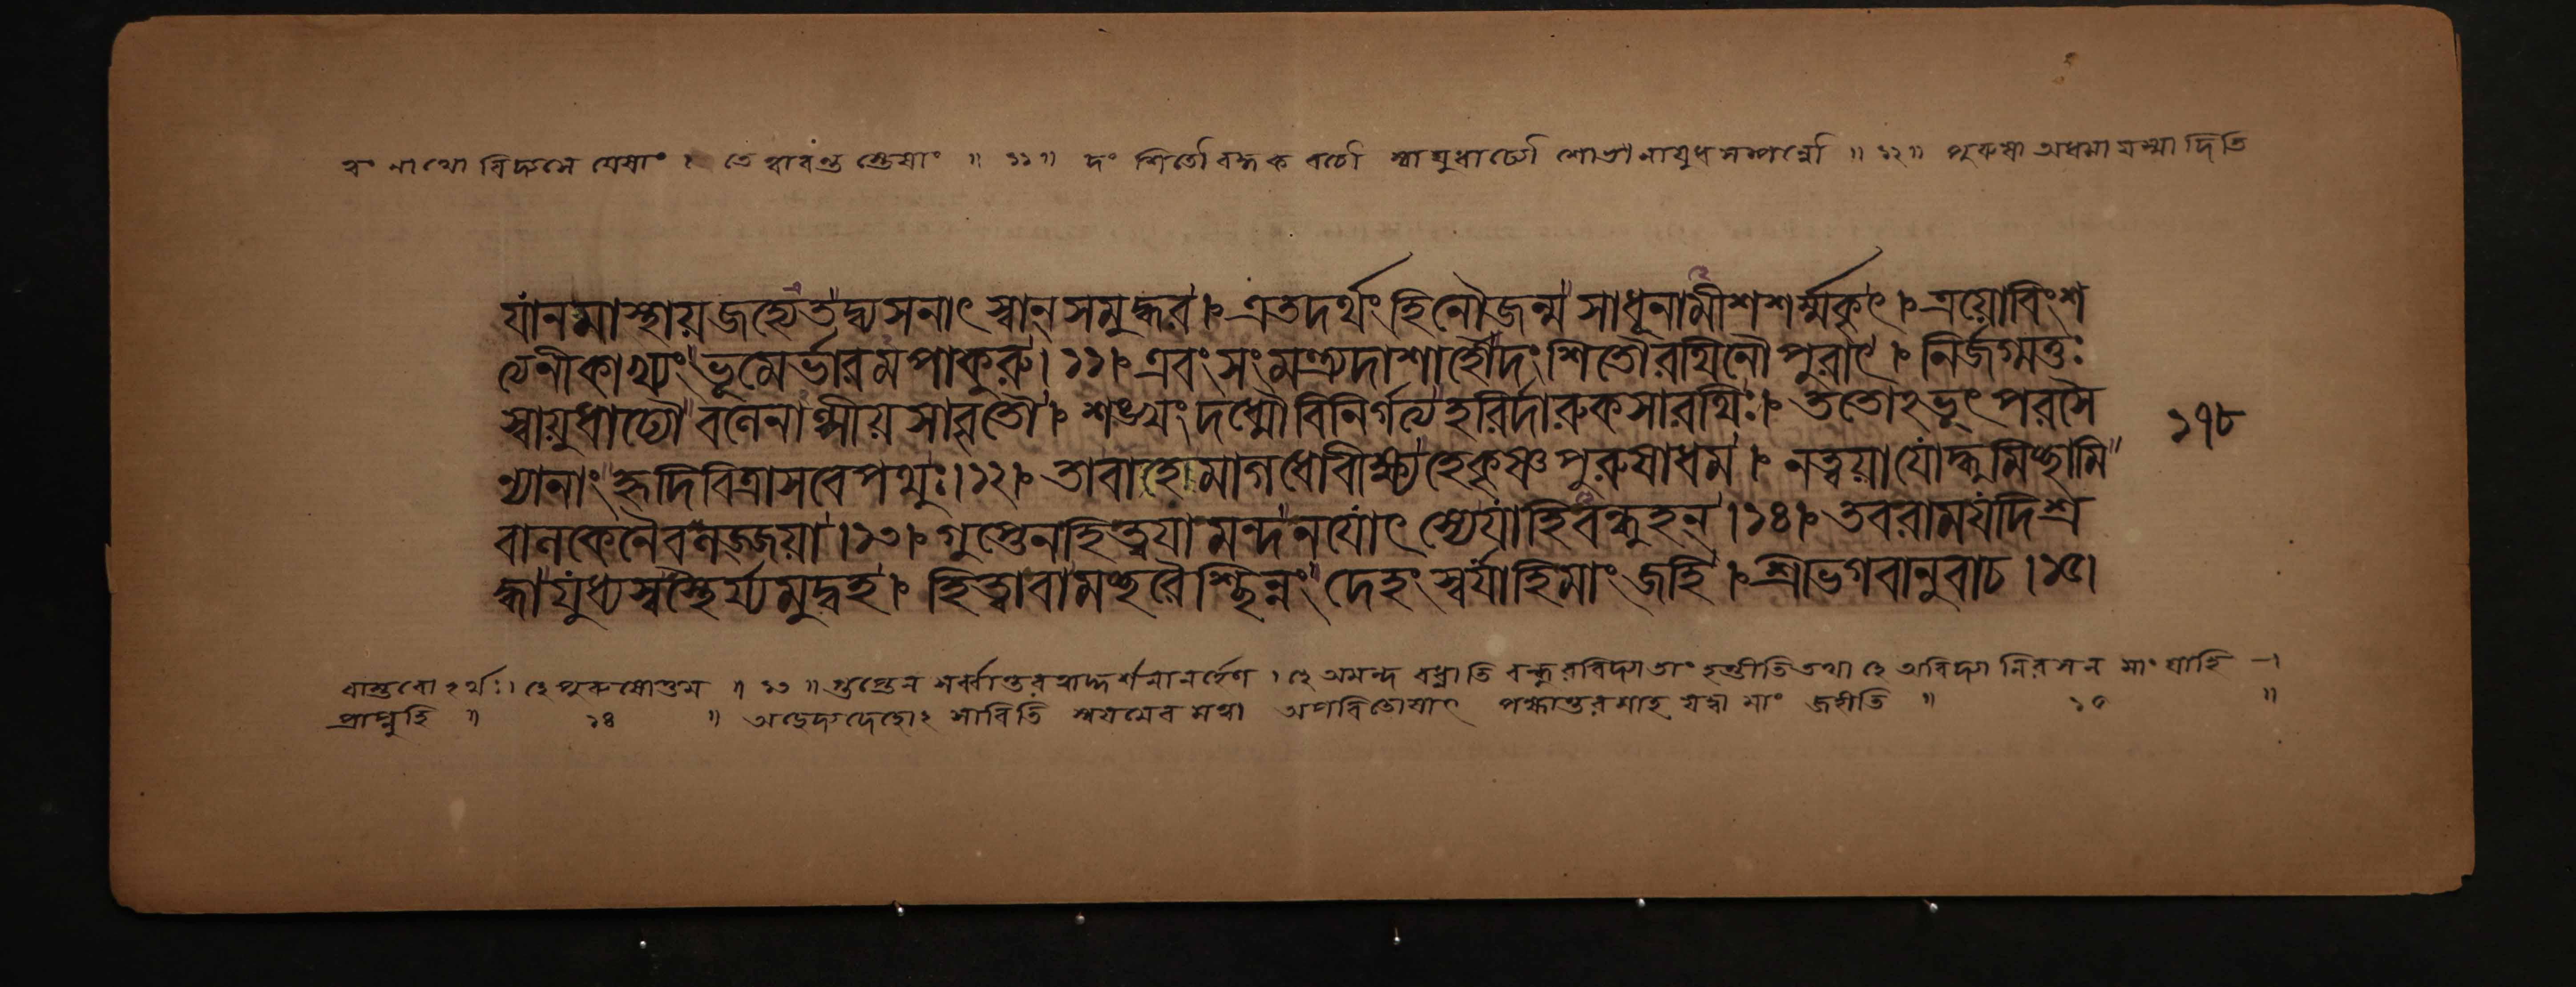 ষাং নাথো বিদ্যতে যেষাং । তে ত্বাবন্তস্তেষাং ॥ ১১॥ দংশিতৌ বদ্ধকবচৌ স্বায়ুধাঢ্যৌ শোভনায়ুধসম্পন্নৌ ॥ ১২॥ পুরুষা অধমা যস্মাদিতি
যানমাস্থায়জহ্যেতদ্ব্যসনাৎ স্বান্সমুদ্ধর । এতদর্থংহিনৌজন্ম সাধূনামীশশর্ম্মকৃৎ । ত্রয়োবিংশ
ত্যনীকাখ্যং ভূমের্ভারমপাকুরু । ১১। এবং সংমন্ত্র্যদাশার্হৌদংশিতৌরথিনৌপুরাৎ । নির্জগ্মতুঃ
স্বায়ুধাঢ্যৌ বলেনাল্পীয়সাবৃতৌ । শঙ্খং দধ্মৌবিনির্গত্য হরির্দারুকসারথিঃ । ততোঽভূৎ পরসৈ
ন্যানাং হৃদিবিত্রাসবেপথুঃ । ১২। তাবাহ মাগধোবীক্ষ্য হেকৃষ্ণপুরুষাধম । নত্বয়াযোদ্ধুমিচ্ছামি
বালকেনৈবলজ্জয়া । ১৩। গুপ্তেনহিত্বয়া মন্দনযোৎস্যেযাহিবন্ধুহন্ । ১৪। তবরামযদিশ্র
দ্ধাযুধ্যস্বস্থৈর্য্যমুদ্বহ । হিত্বাবামচ্ছরৈশ্ছিন্নং দেহং স্বর্যাহিমাং জহি । শ্রীভগবানুবাচ । ১৫।
১৭৮
বাস্তবোঽর্থঃ । হে পুরুষোত্তম ॥ ১৩ ॥ গুপ্তেন সর্ব্বান্তরত্বাদ্দর্শনানর্হেণ । হে অমন্দ বধ্নাতি বন্ধুরবিদ্যা তাং হন্তীতি তথা হে অবিদ্যানিরসন মাং যাহি
প্রাপ্নুহি ॥ ১৪ ॥ অচ্ছেদ্যদেহোঽসাবিতি স্বয়মেব মত্বা অপরিতোষাৎ পক্ষান্তরমাহ যদ্বা মাং জহীতি ॥ ১৫ ॥